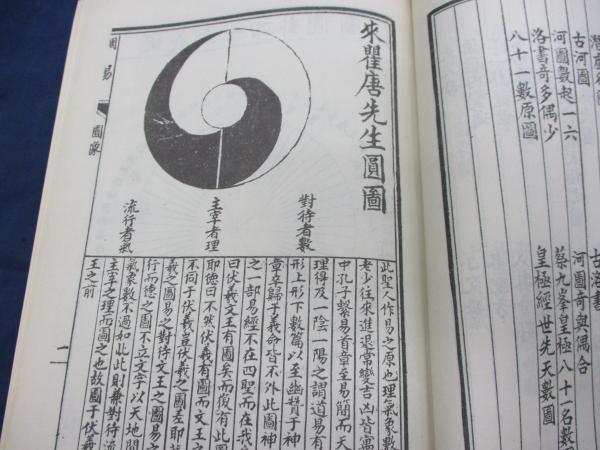 潛虛
古河圖
河圖數起一六
洛書奇多偶少
八十一數原圖
古洛書
河圖奇與偶合
蔡九峯皇極八十一名數
皇極經世先天數圖
來瞿唐先生圓圖
對待者數
主宰者理
流行者氣
周易
圖象
一
此聖人作易之原也理氣象數
老少往來進退常變吉凶皆寓
中孔子繫易首章至易簡而天
理得及一陰一陽之謂道易有
形上形下數篇以至幽贊于神
章卒歸于義命皆不外此圖神
之一部易經不在四聖而在我
曰伏羲文王有圖矣而復有此圖
耶德曰不然伏羲有圖而文王之
不同于伏羲豈伏羲之圖差耶
羲之圖易之對待文王之圖易之
行而德之圖不立文字以天地間
氣象數不過如此此則兼對待流
主宰之理而圖之也故圖于伏羲
王之前